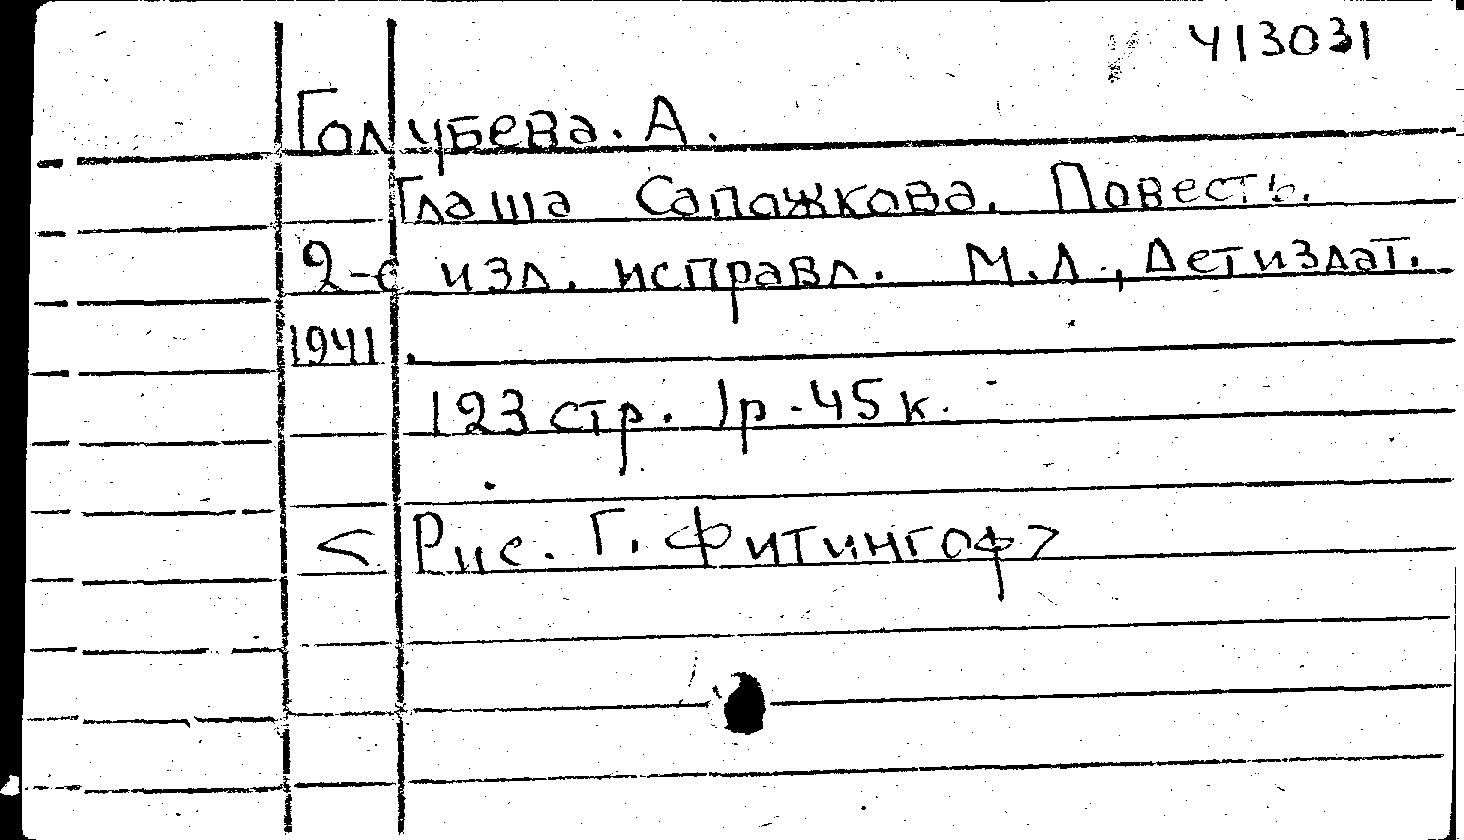 413031
Голубева. А.
Глаша Сапожкова. Повесть.
2-е изд. исправл. М.Л., Детиздат.
1941.
123 стр. 1р.-45к.
<Рис. Г. Фитингоф>